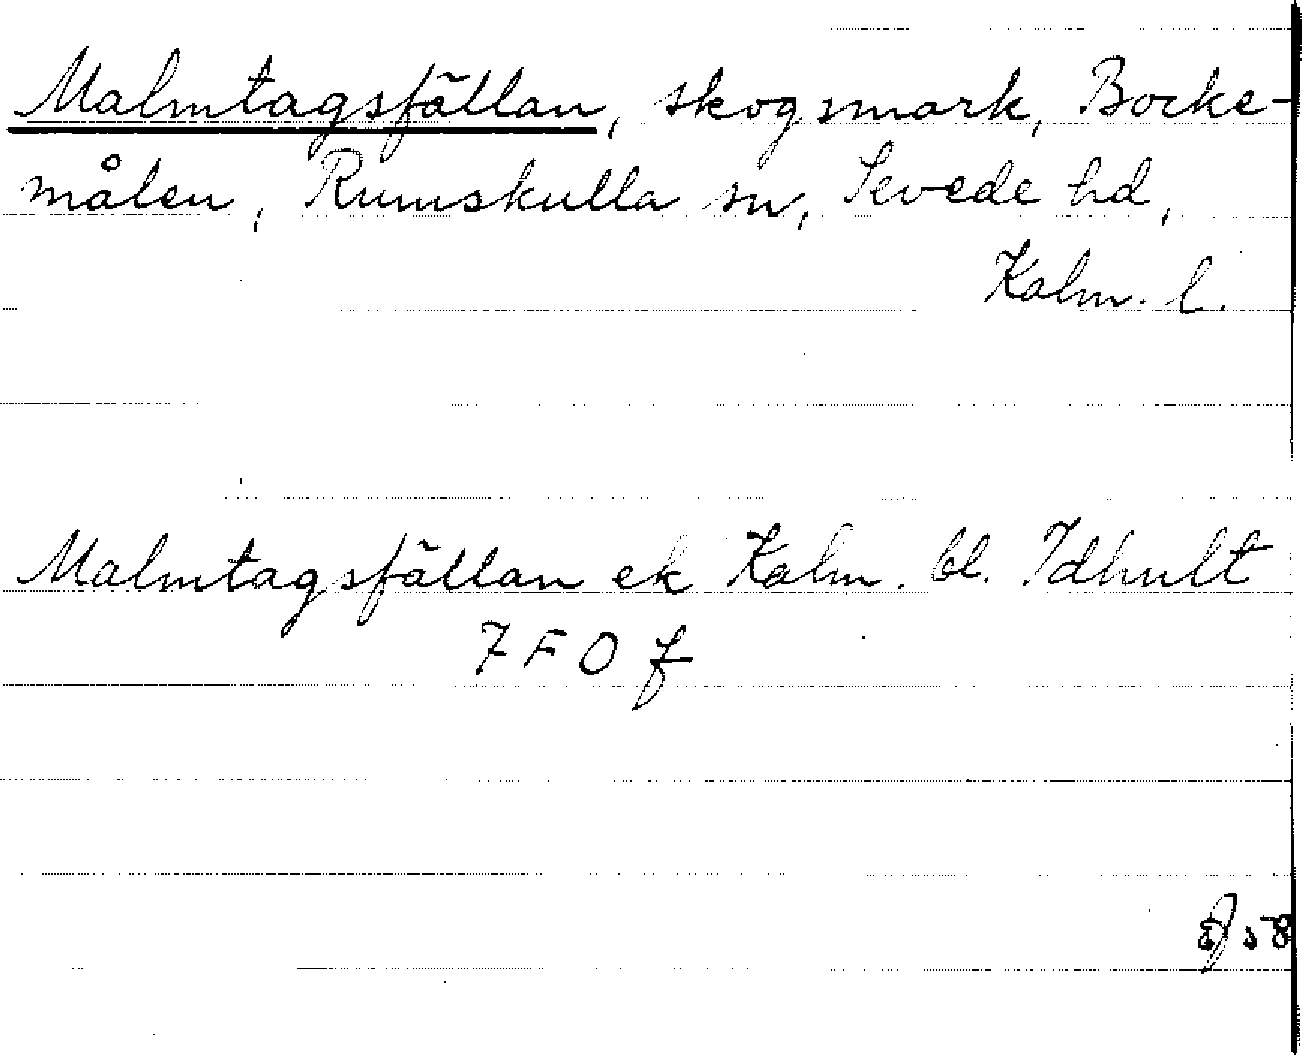 Malmtagsfällan, skogsmark, Bocke-
målen, Rumskulla sn, Sevede hd,
Kalm. l.
Malmtagsfällan ek Kalm. bl. Idhult
7 F O f